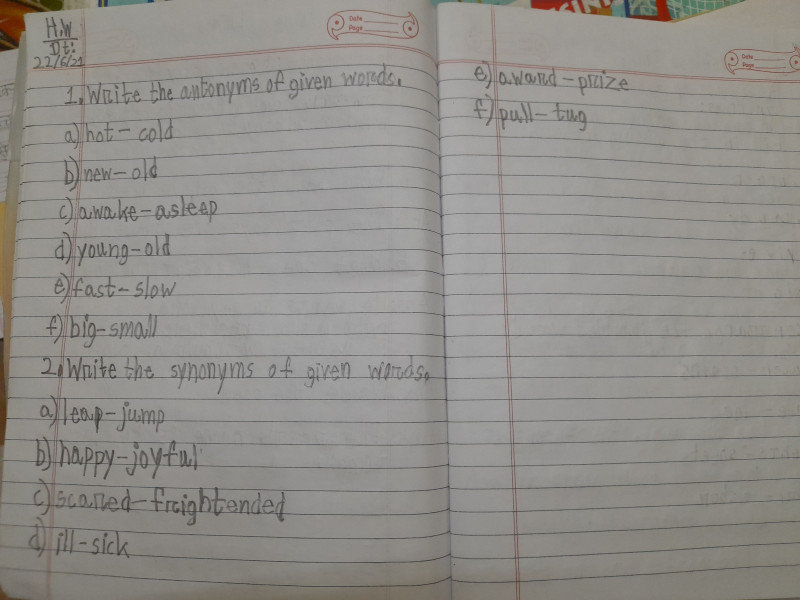 H.W
Dt:
22/6/21
Date
Page
1. Write the antonyms of given words.
a) hot – cold
b) new – old
c) awake – asleep
d) young – old
e) fast – slow
f) big – small
2. Write the synonyms of given words.
a) leap – jump
b) happy – joyful
c) scared – freightended
d) ill – sick
Date
Page
e) award – prize
f) pull – tug